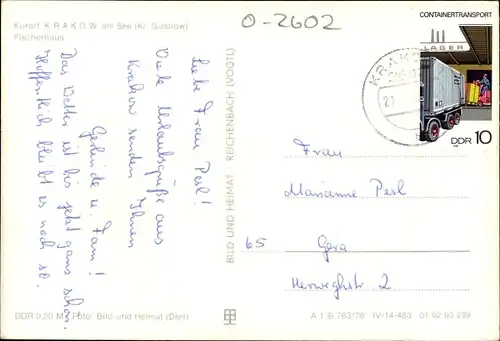 Kurort KRAKOW am See (Kr. Güstrow)
Fischerhaus
O-2602
Liebe Frau Pesl!
Viele Urlaubsgrüße aus
Krakow senden Ihnen
Gerlinde u. Fam!
Das Wetter ist bis jetzt ganz schön.
Hoffentlich bleibt es noch so.
BILD UND HEIMAT REICHENBACH (VOGTL)
CONTAINERTRANSPORT
LAGER
DDR 10
KRAKO
21
Frau
Marianne Pesl
65 Gera
Herweghstr 2
DDR 0,20 M Foto: Bild und Heimat (Darr)
A 1 B 763/78 IV-14-483 01 02 03 239